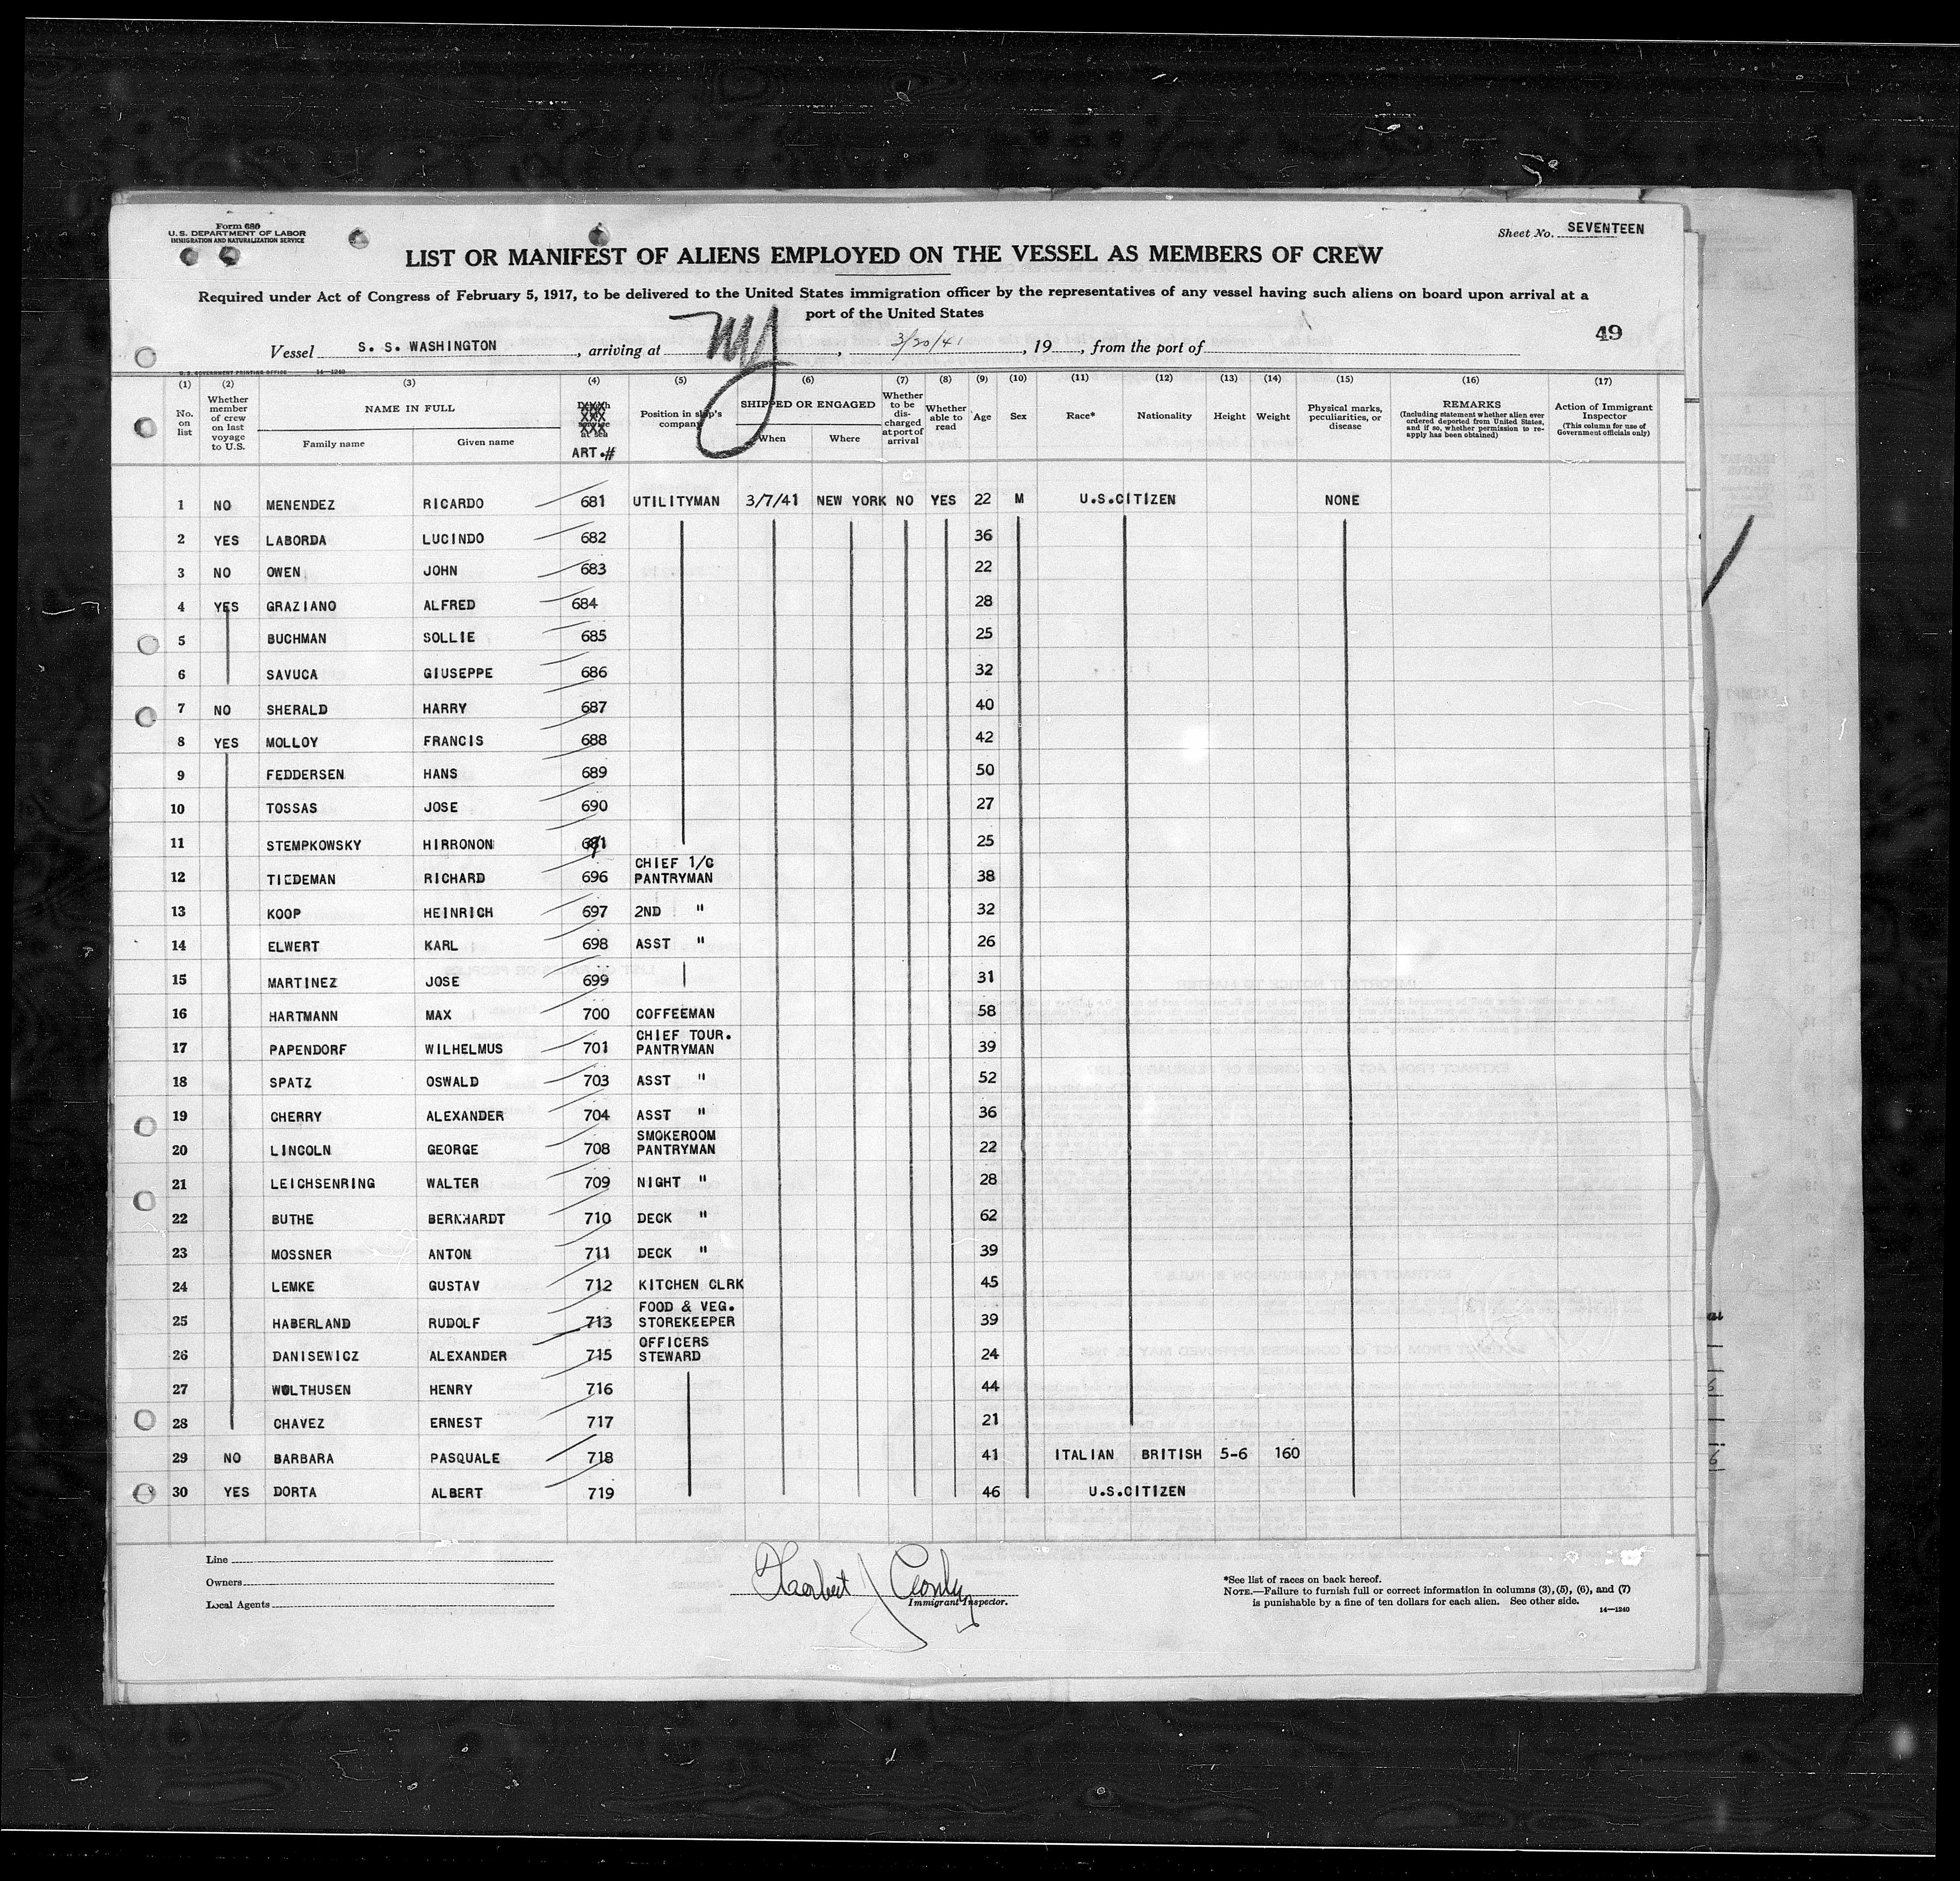 Form 680
U. S. DEPARTMENT OF LABOR
IMMIGRATION AND NATURALIZATION SERVICE
Sheet No. SEVENTEEN
LIST OR MANIFEST OF ALIENS EMPLOYED ON THE VESSEL AS MEMBERS OF CREW
Required under Act of Congress of February 5, 1917, to be delivered to the United States immigration officer by the representatives of any vessel having such aliens on board upon arrival at a
port of the United States
49
Vessel S. S. WASHINGTON, arriving at NY, 3/20/41, 19, from the port of
U. S. GOVERNMENT PRINTING OFFICE 14—1240
(1) (2) (3) (4) (5) (6) (7) (8) (9) (10) (11) (12) (13) (14) (15) (16) (17)
No. on list
Whether member of crew on last voyage to U.S.
NAME IN FULL
Family name
Given name
service at sea
ART.#
Position in ship's company
SHIPPED OR ENGAGED
When
Where
Whether to be discharged at port of arrival
Whether able to read
Age
Sex
Race*
Nationality
Height
Weight
Physical marks, peculiarities, or disease
REMARKS
(Including statement whether alien ever ordered deported from United States, and if so, whether permission to re-apply has been obtained)
Action of Immigrant Inspector
(This column for use of Government officials only)
1 NO MENENDEZ RICARDO 681 UTILITYMAN 3/7/41 NEW YORK NO YES 22 M U.S.CITIZEN NONE
2 YES LABORDA LUCINDO 682 36
3 NO OWEN JOHN 683 22
4 YES GRAZIANO ALFRED 684 28
5 BUCHMAN SOLLIE 685 25
6 SAVUCA GIUSEPPE 686 32
7 NO SHERALD HARRY 687 40
8 YES MOLLOY FRANCIS 688 42
9 FEDDERSEN HANS 689 50
10 TOSSAS JOSE 690 27
11 STEMPKOWSKY HIRRONON 691 25
12 TIEDEMAN RICHARD 696 CHIEF 1/C PANTRYMAN 38
13 KOOP HEINRICH 697 2ND " 32
14 ELWERT KARL 698 ASST " 26
15 MARTINEZ JOSE 699 31
16 HARTMANN MAX 700 COFFEEMAN 58
17 PAPENDORF WILHELMUS 701 CHIEF TOUR. PANTRYMAN 39
18 SPATZ OSWALD 703 ASST " 52
19 CHERRY ALEXANDER 704 ASST " 36
20 LINCOLN GEORGE 708 SMOKEROOM PANTRYMAN 22
21 LEICHSENRING WALTER 709 NIGHT " 28
22 BUTHE BERNHARDT 710 DECK " 62
23 MOSSNER ANTON 711 DECK " 39
24 LEMKE GUSTAV 712 KITCHEN CLRK 45
25 HABERLAND RUDOLF 713 FOOD & VEG. STOREKEEPER 39
26 DANISEWICZ ALEXANDER 715 OFFICERS STEWARD 24
27 WOLTHUSEN HENRY 716 44
28 CHAVEZ ERNEST 717 21
29 NO BARBARA PASQUALE 718 41 ITALIAN BRITISH 5-6 160
30 YES DORTA ALBERT 719 46 U.S.CITIZEN
Line
Owners
Local Agents
Herbert J
Immigrant Inspector.
*See list of races on back hereof.
NOTE.—Failure to furnish full or correct information in columns (3), (5), (6), and (7)
is punishable by a fine of ten dollars for each alien. See other side.
14—1240